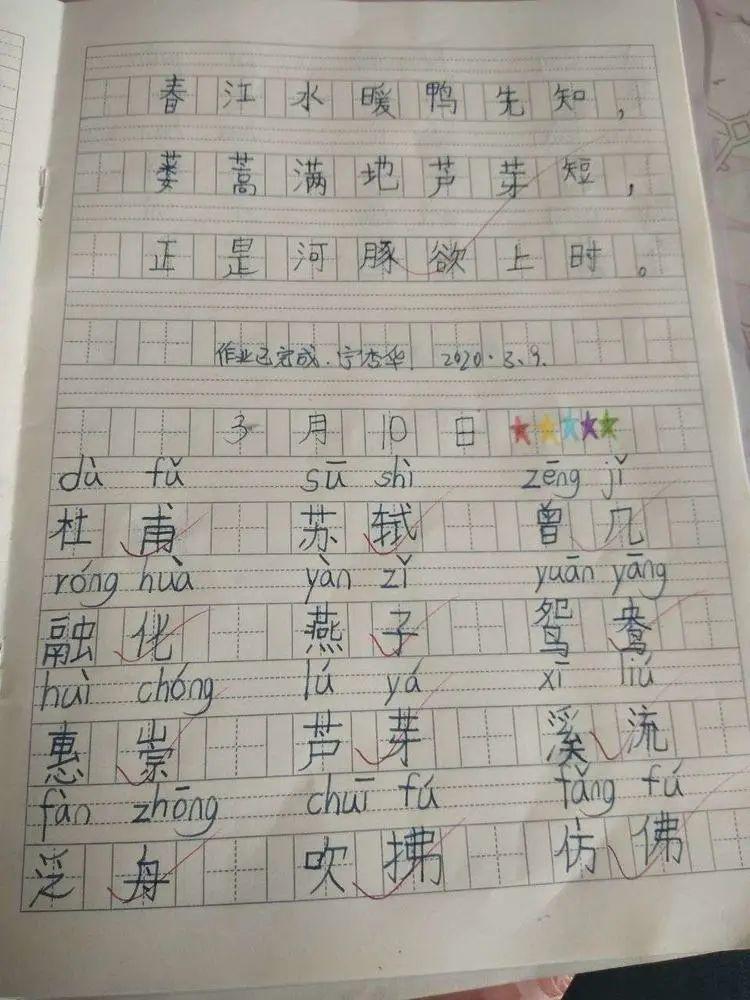 春江水暖鸭先知，
蒌蒿满地芦芽短，
正是河豚欲上时。
作业已完成. 宁杏华. 2020.3.9.
3月10日
dù fǔ sū shì zēng jǐ
杜甫 苏轼 曾几
róng huà yàn zǐ yuān yāng
融化 燕子 鸳鸯
huì chóng lú yá xī liú
惠崇 芦芽 溪流
fàn zhōng chuī fú fǎng fú
泛舟 吹拂 仿佛